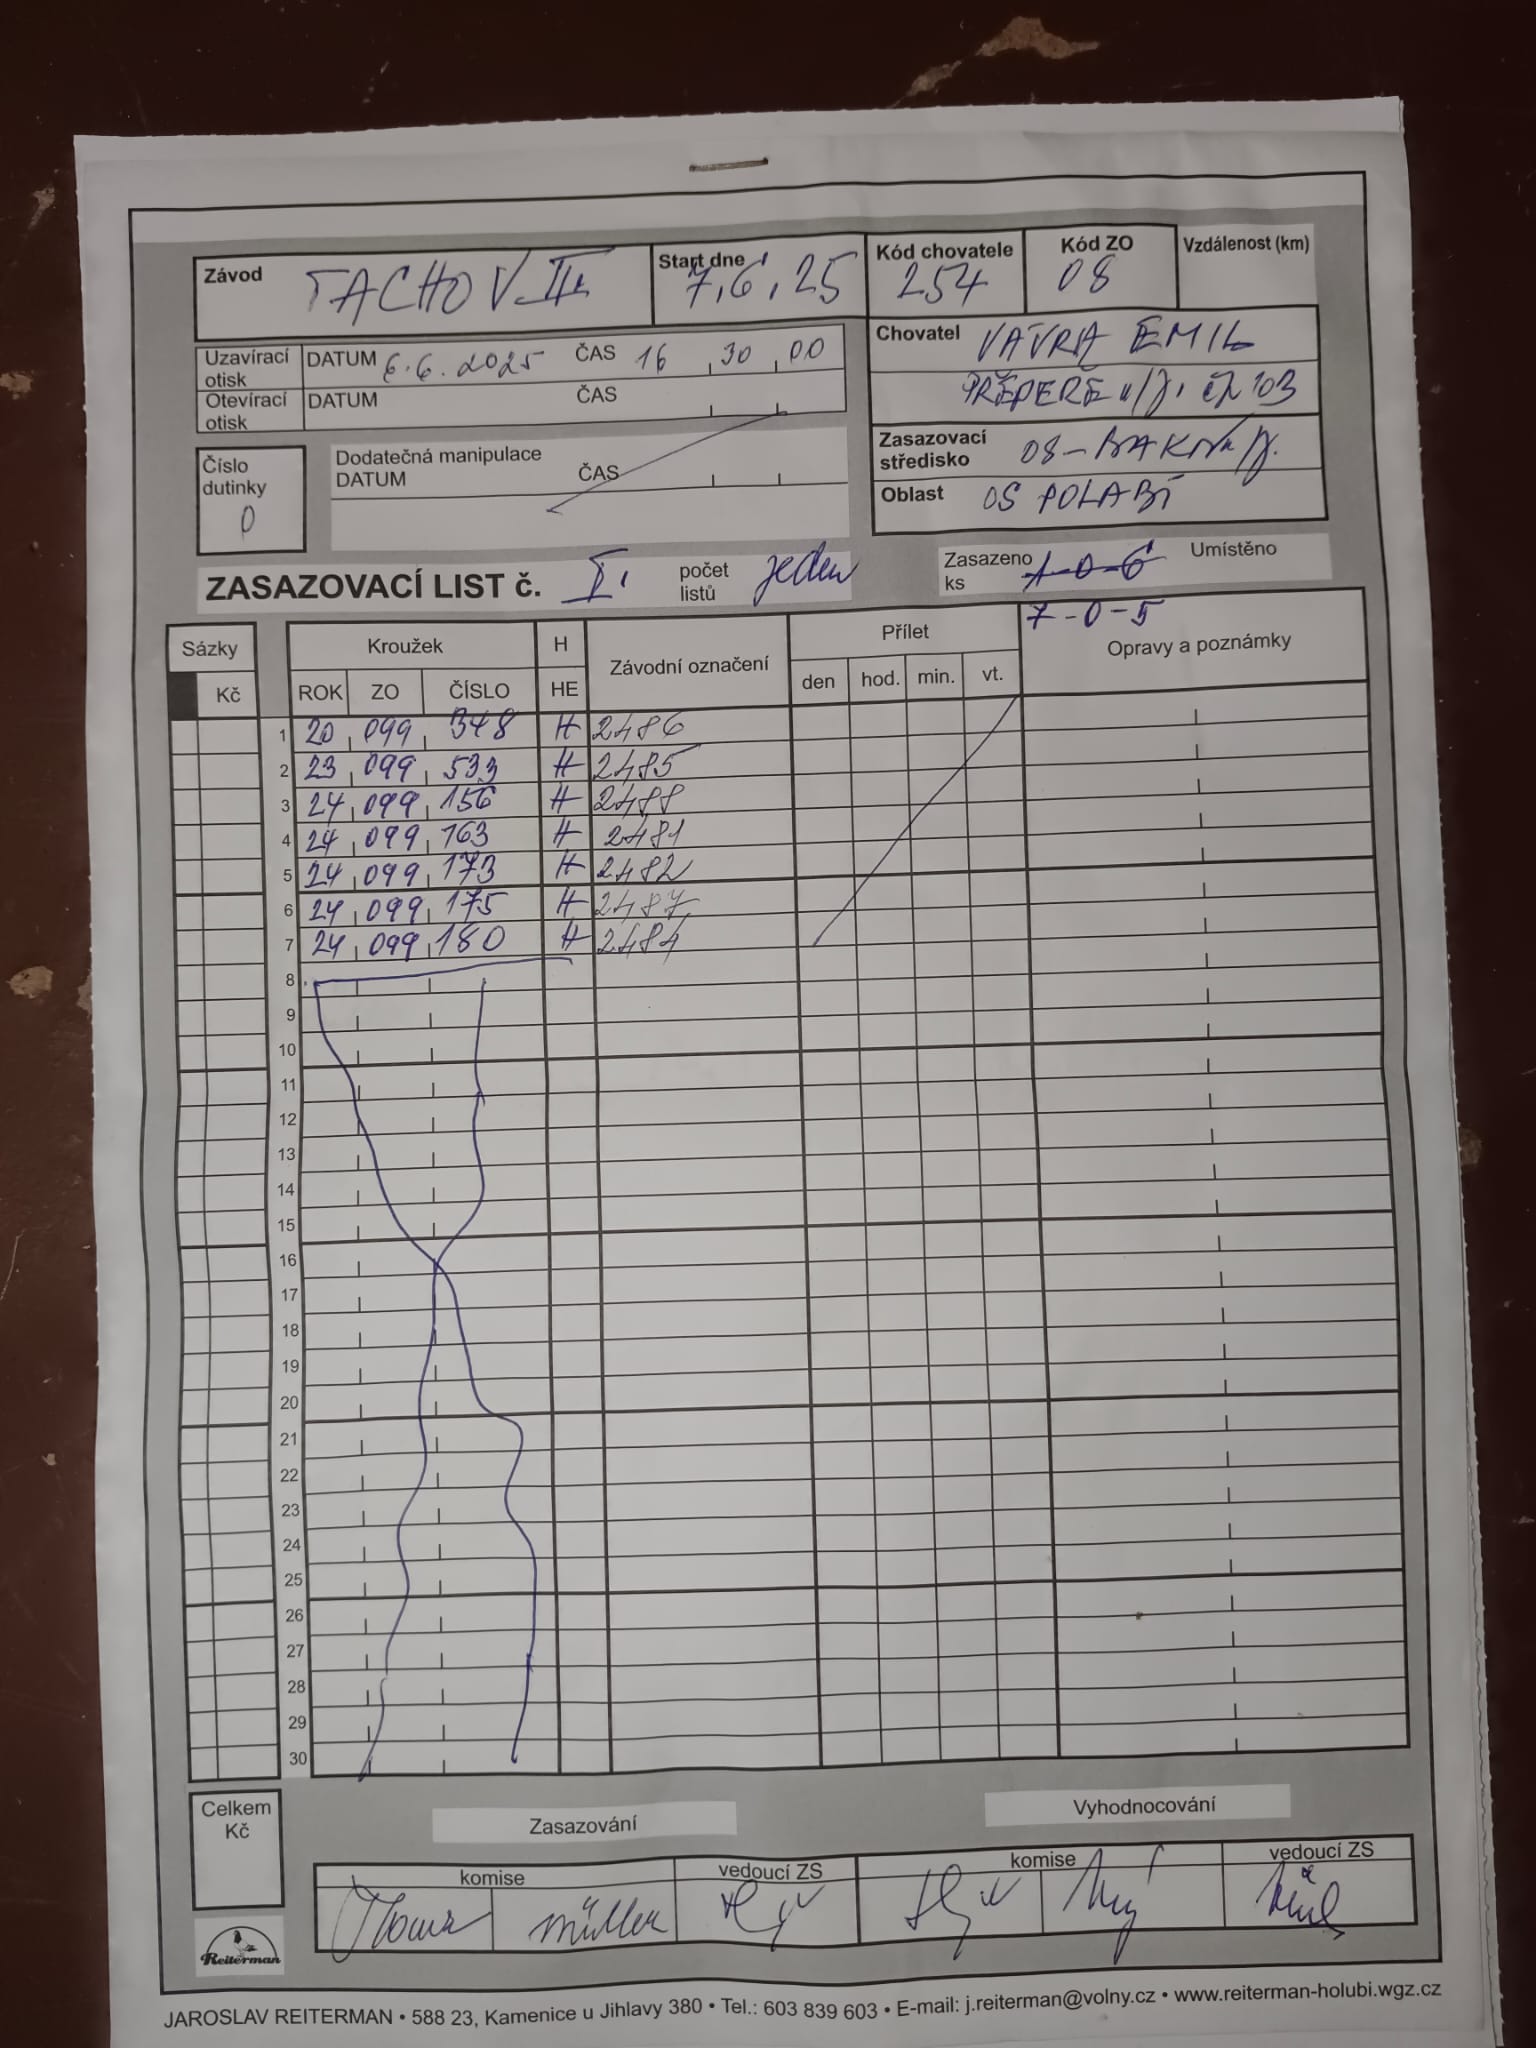 Závod TACHOV III. Start dne 7.6.25 Kód chovatele 254 Kód ZO 08 Vzdálenost (km)
Uzavírací otisk DATUM 6.6.2025 ČAS 16 30 00
Otevírací otisk DATUM ČAS
Chovatel VÁVRA EMIL
PŘEPEŘE u/J. čp 103
Číslo dutinky 0
Dodatečná manipulace
DATUM ČAS
Zasazovací středisko 08-BAKOV n/J.
Oblast OS POLABÍ
ZASAZOVACÍ LIST č. I. počet listů jeden
Zasazeno ks 1-0-6 Umístěno
7-0-5
Sázky Kroužek H Závodní označení Přílet Opravy a poznámky
Kč ROK ZO ČÍSLO HE den hod. min. vt.
1 20 099 348 H 2486
2 23 099 533 H 2485
3 24 099 156 H 2488
4 24 099 163 H 2481
5 24 099 173 H 2482
6 24 099 175 H 2487
7 24 099 180 H 2484
8
9
10
11
12
13
14
15
16
17
18
19
20
21
22
23
24
25
26
27
28
29
30
Celkem Kč
Zasazování Vyhodnocování
komise vedoucí ZS komise vedoucí ZS
Müller
Reiterman
JAROSLAV REITERMAN • 588 23, Kamenice u Jihlavy 380 • Tel.: 603 839 603 • E-mail: j.reiterman@volny.cz • www.reiterman-holubi.wgz.cz